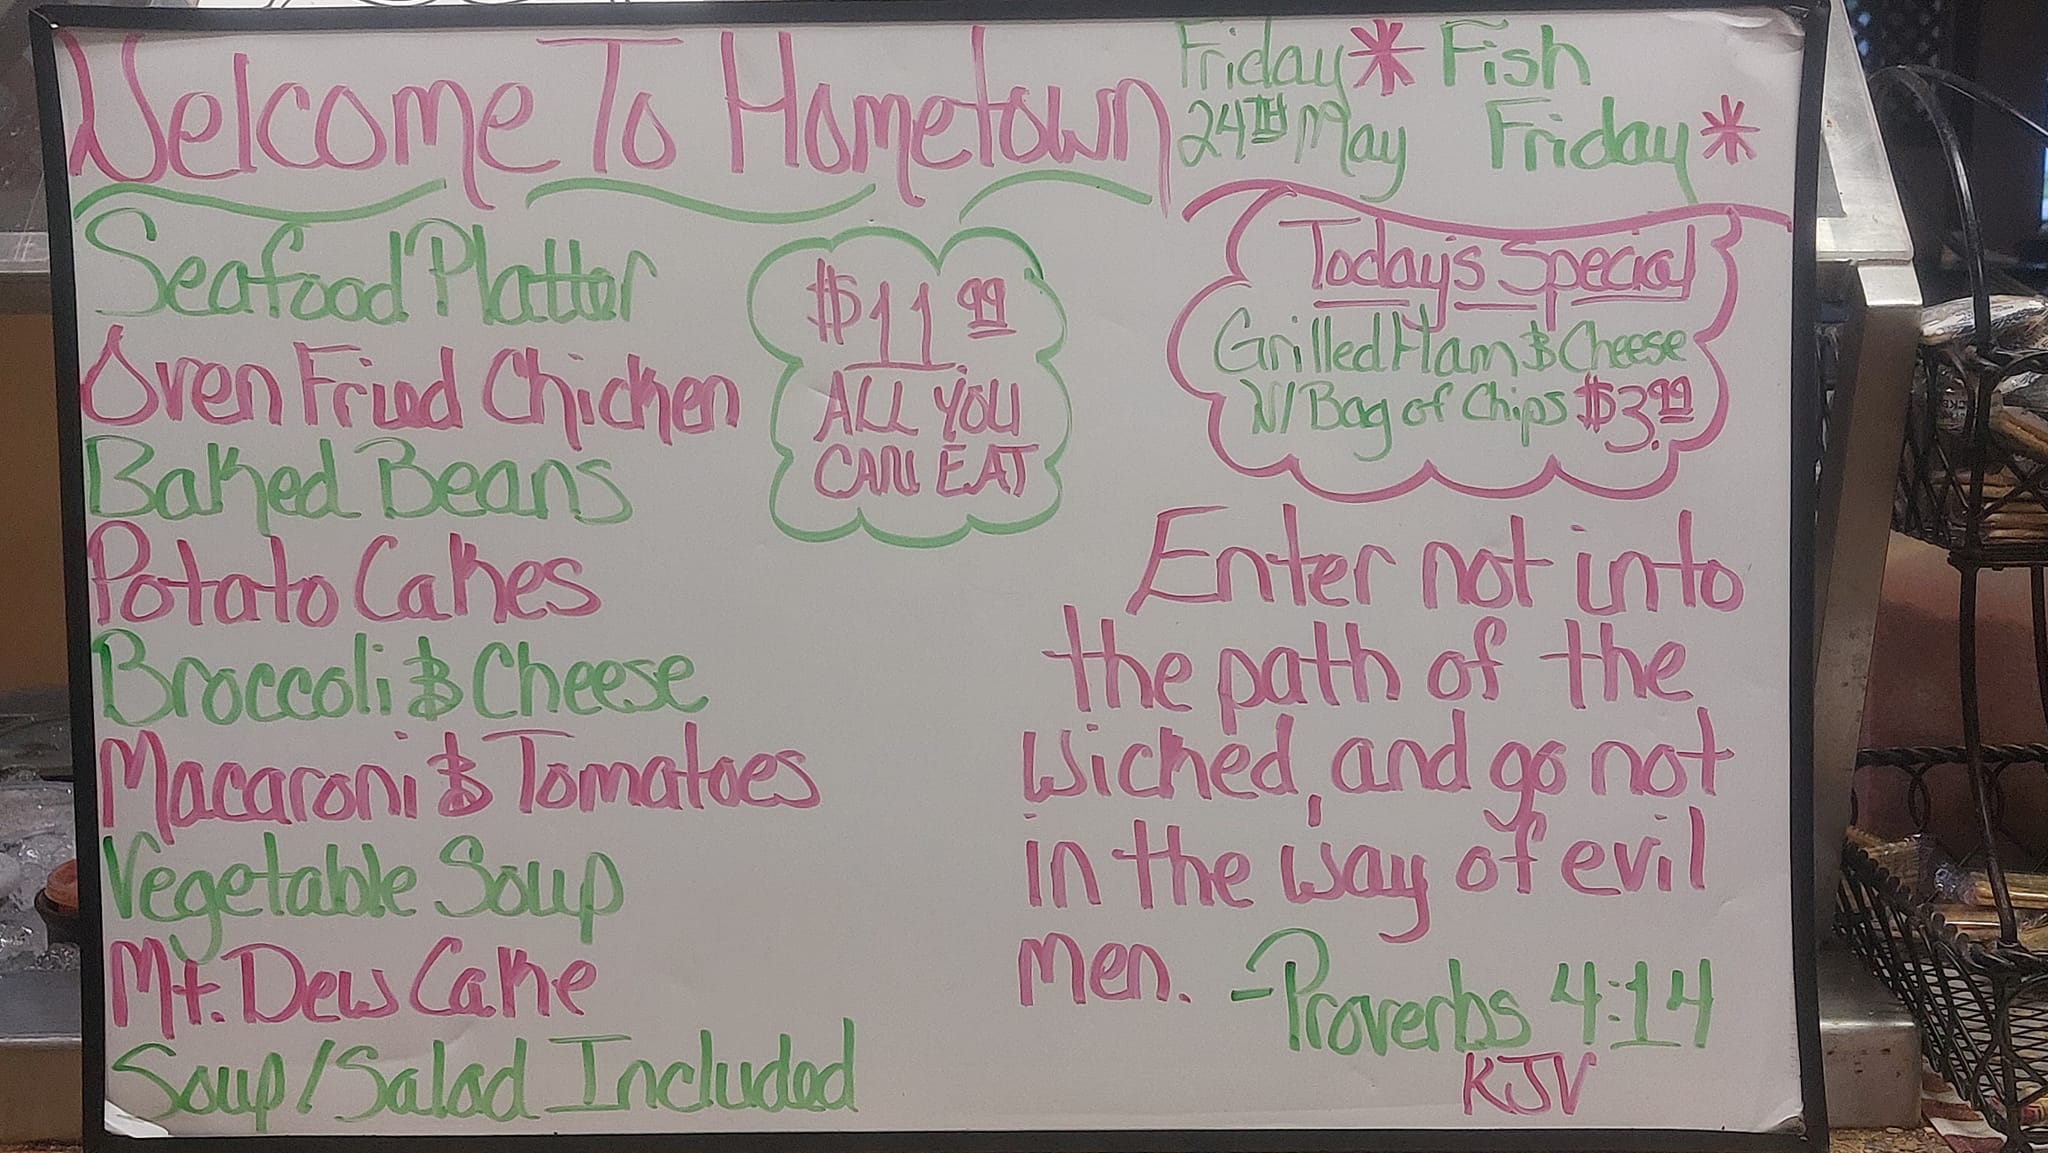 Welcome To Hometown
Friday * Fish
24TH May Friday *
Seafood Platter
Oven Fried Chicken
Baked Beans
Potato Cakes
Broccoli & Cheese
Macaroni & Tomatoes
Vegetable Soup
Mt. Dew Cake
Soup/Salad Included
$11.99
ALL YOU
CAN EAT
Today's Special
Grilled Ham & Cheese
W/ Bag of Chips $3.99
Enter not into
the path of the
wicked, and go not
in the way of evil
men. - Proverbs 4:14
KJV